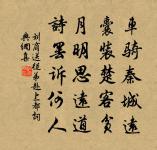 車騎秦城遠
囊裝楚客貧
月明思遠道
詩罷訴何人
刘商送從弟赴上都詞